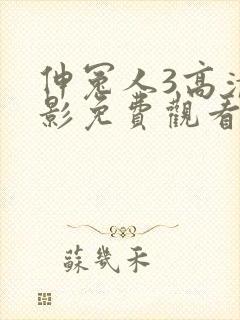 伸冤人3高清
影免費觀看
蘇幾禾